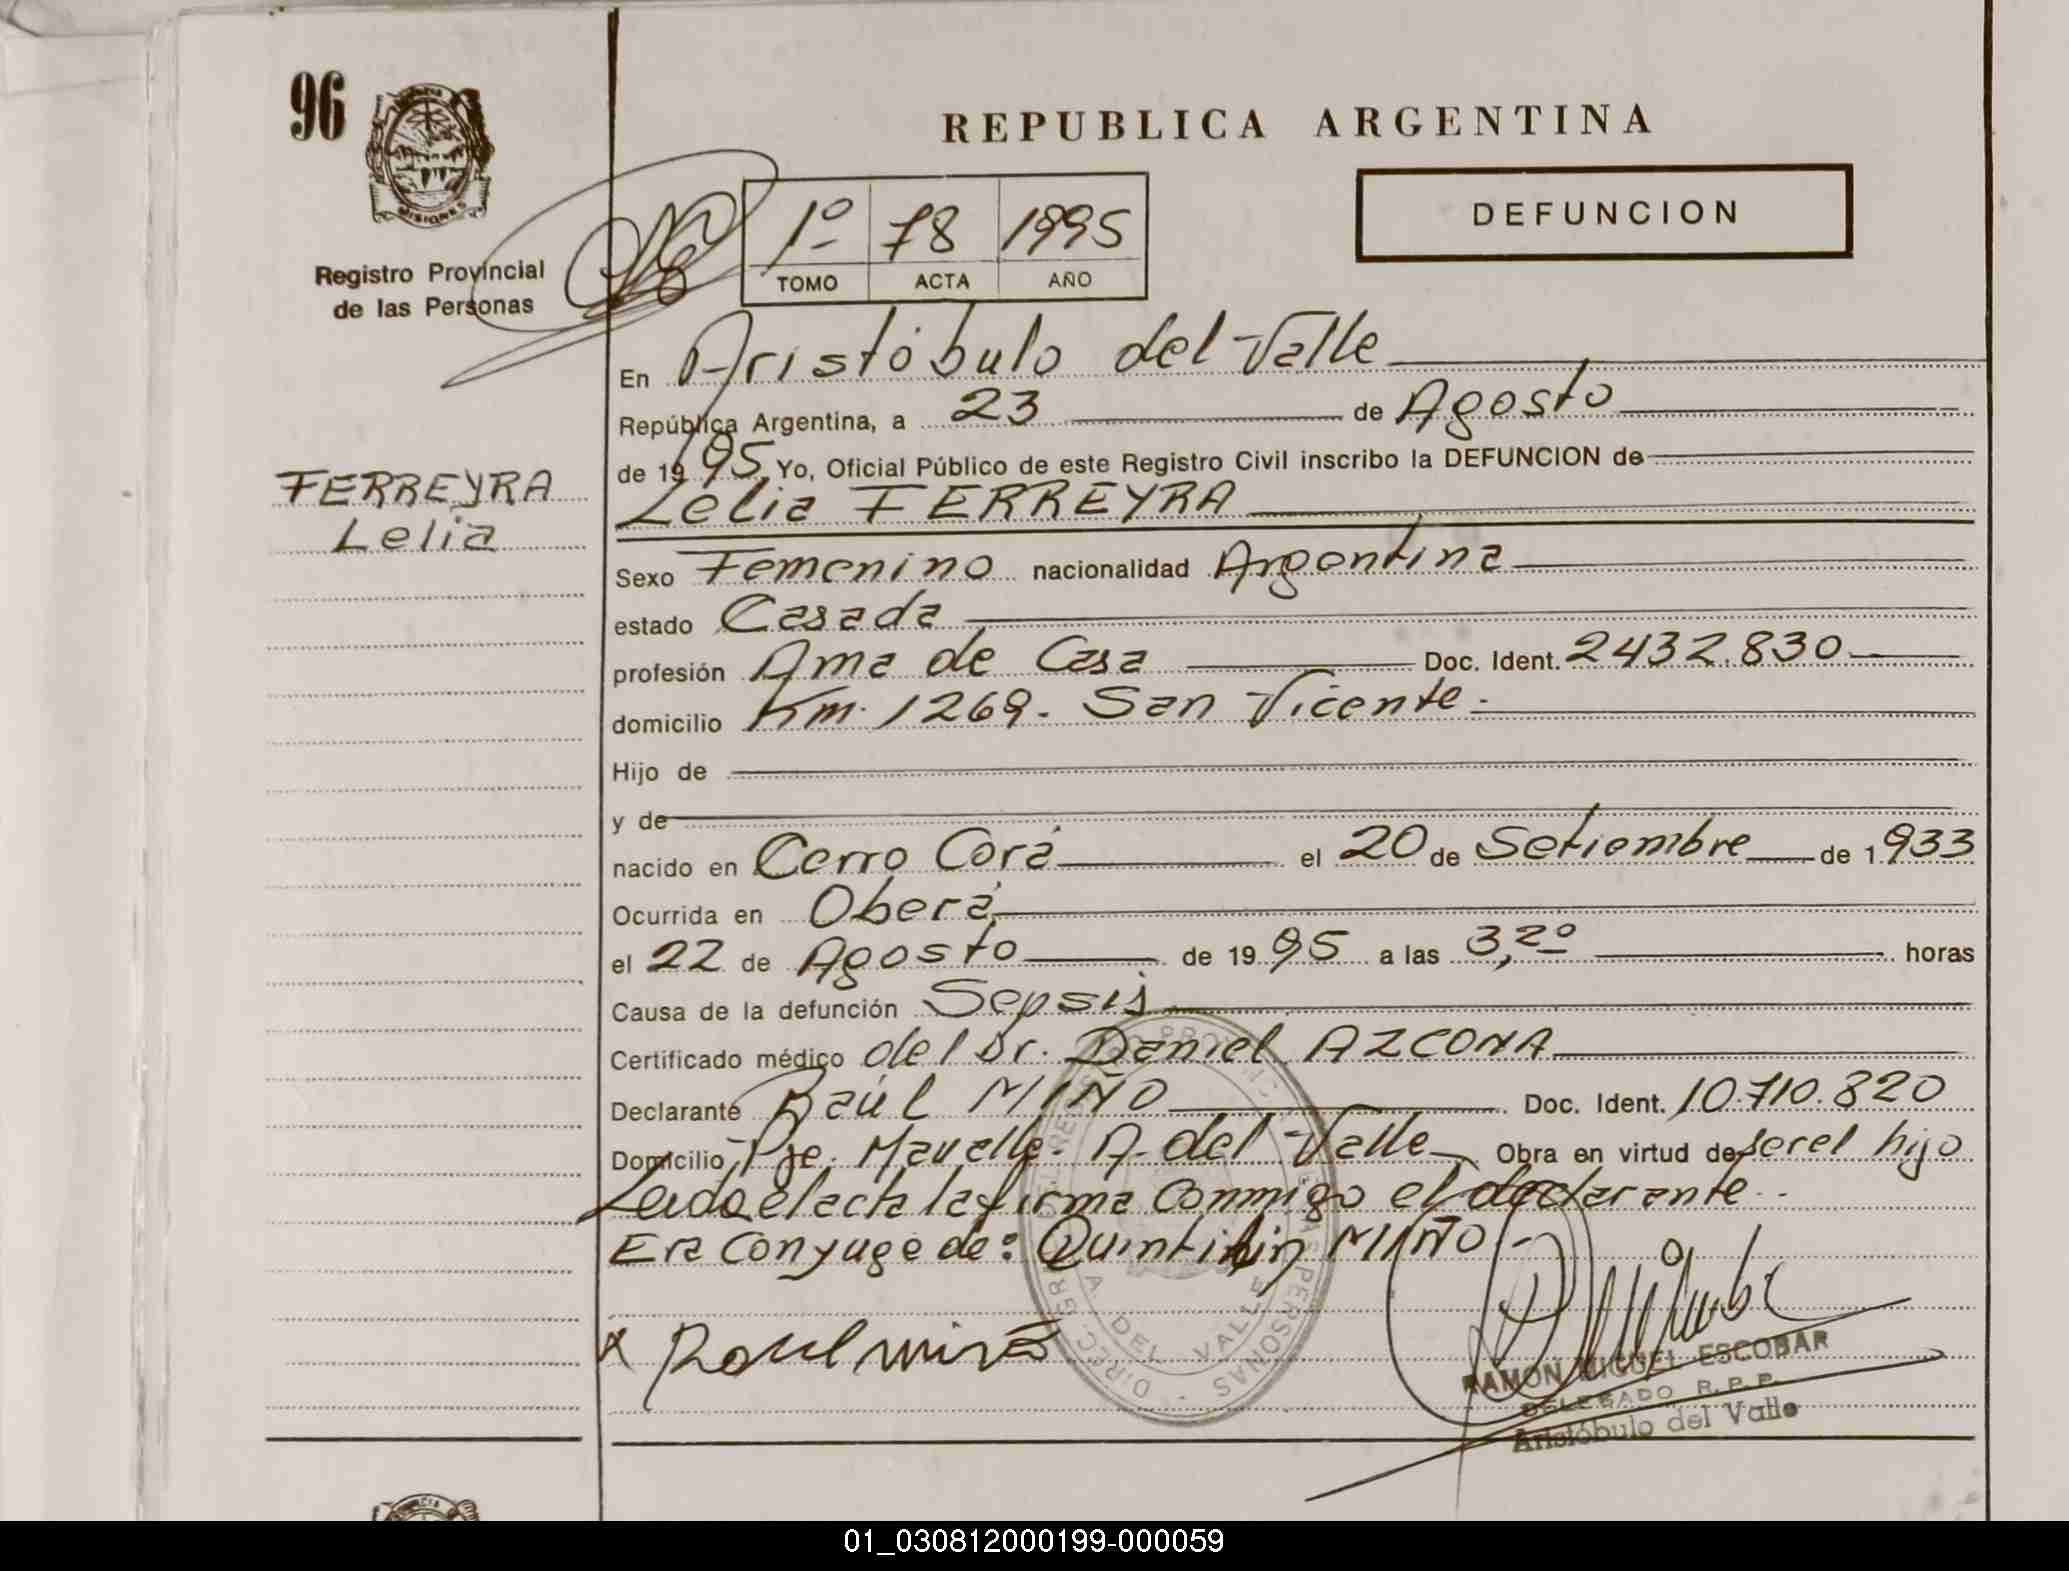 96
MISIONES
Registro Provincial
de las Personas
REPUBLICA ARGENTINA
DEFUNCION
1º 78 1995
TOMO ACTA AÑO
FERREYRA
Lelia
En Aristóbulo del Valle
República Argentina, a 23 de Agosto
de 1995, Yo, Oficial Público de este Registro Civil inscribo la DEFUNCION de
Lelia FERREYRA
Sexo Femenino nacionalidad Argentina
estado Casada
profesión Ama de Casa Doc. Ident. 2432.830
domicilio Km. 1269. San Vicente.
Hijo de
y de
nacido en Cerro Corá el 20 de Setiembre de 1.933
Ocurrida en Oberá
el 22 de Agosto de 1995 a las 3,20 horas
Causa de la defunción Sepsis
Certificado médico del Dr. Daniel AZCONA
Declarante Raúl MIÑO Doc. Ident. 10.710.820
Domicilio Pje. Mavalle. A. del Valle Obra en virtud de ser el hijo
Leida el acta la firma conmigo el declarante.
Era Conyuge de: MIÑO
X Raul miño
RAMON MIGUEL ESCOBAR
DELEGADO R.P.P.
Aristóbulo del Valle
A. DEL VALLE
01_030812000199-000059